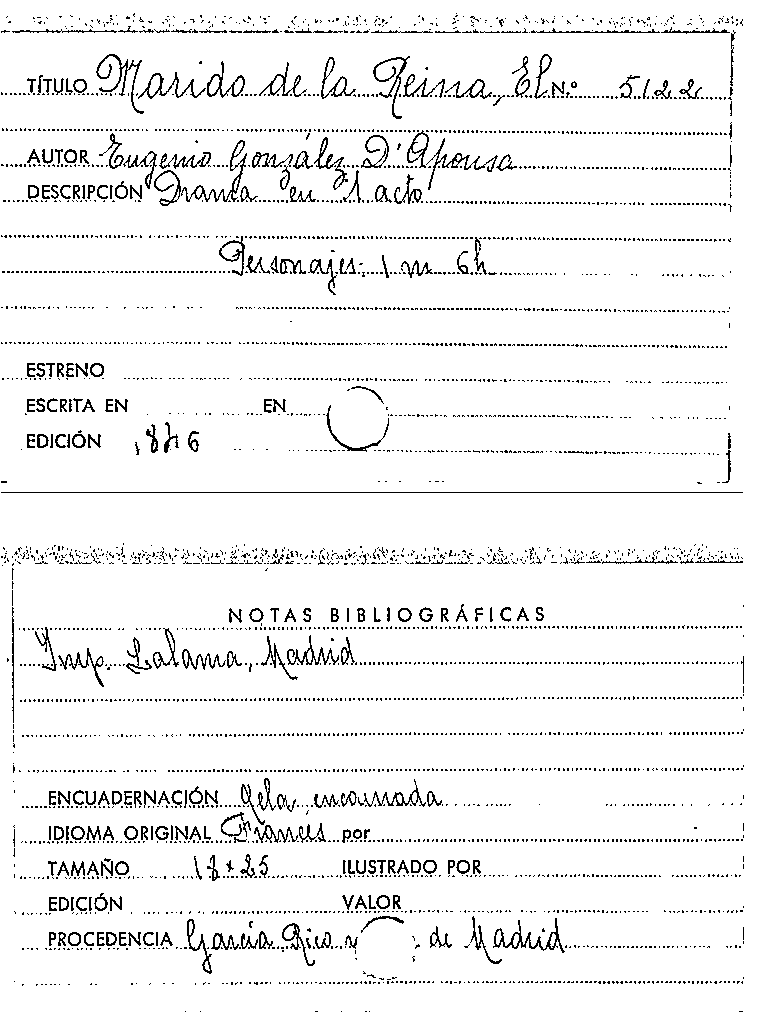 TÍTULO Marido de la Reina, El N.º 5122
AUTOR Eugenio González D'Apousa
DESCRIPCIÓN Drama en 1 acto
Personajes: 1 m 6h
ESTRENO
ESCRITA EN EN
EDICIÓN 1846
NOTAS BIBLIOGRÁFICAS
Imp. Lalama, Madrid
ENCUADERNACIÓN Tela encarnada
IDIOMA ORIGINAL Francés por
TAMAÑO 18 x 25 ILUSTRADO POR
EDICIÓN VALOR
PROCEDENCIA García Rico y de Madrid